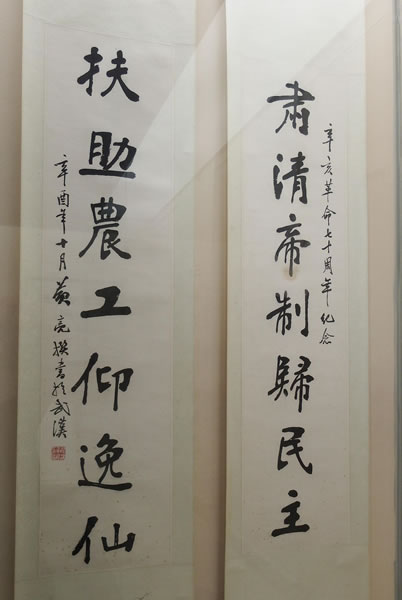 辛亥革命七十周年纪念
肃清帝制歸民主
扶助農工仰逸仙
辛酉年十月黄亮撰書於武漢